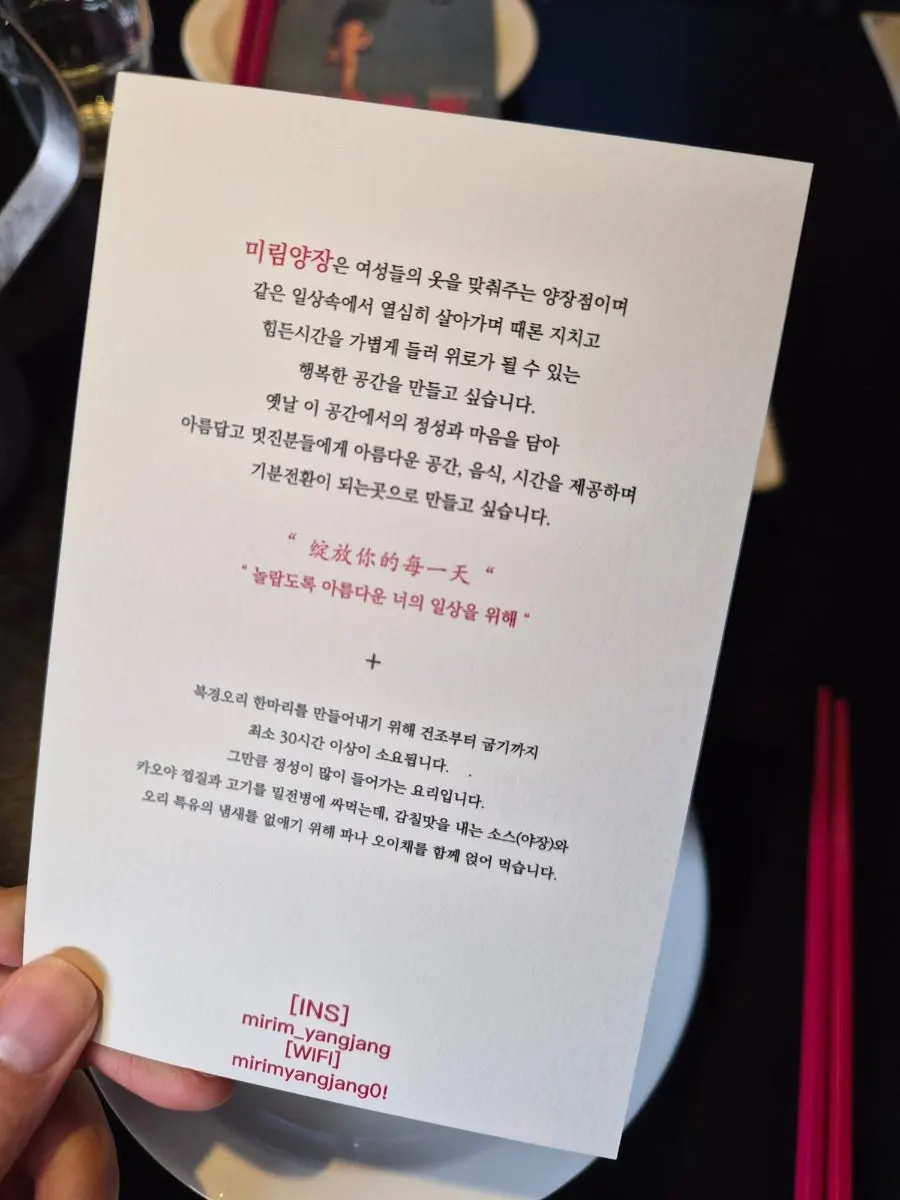 미림양장은 여성들의 옷을 맞춰주는 양장점이며
같은 일상속에서 열심히 살아가며 때론 지치고
힘든시간을 가볍게 들러 위로가 될 수 있는
행복한 공간을 만들고 싶습니다.
옛날 이 공간에서의 정성과 마음을 담아
아름답고 멋진분들에게 아름다운 공간, 음식, 시간을 제공하며
기분전환이 되는곳으로 만들고 싶습니다.
“ 绽放你的每一天 “
“ 놀랍도록 아름다운 너의 일상을 위해 “
+
북경오리 한마리를 만들어내기 위해 건조부터 굽기까지
최소 30시간 이상이 소요됩니다.
그만큼 정성이 많이 들어가는 요리입니다.
카오야 껍질과 고기를 밀전병에 싸먹는데, 감칠맛을 내는 소스(야장)와
오리 특유의 냄새를 없애기 위해 파나 오이채를 함께 얹어 먹습니다.
[INS]
mirim_yangjang
[WIFI]
mirimyangjang0!